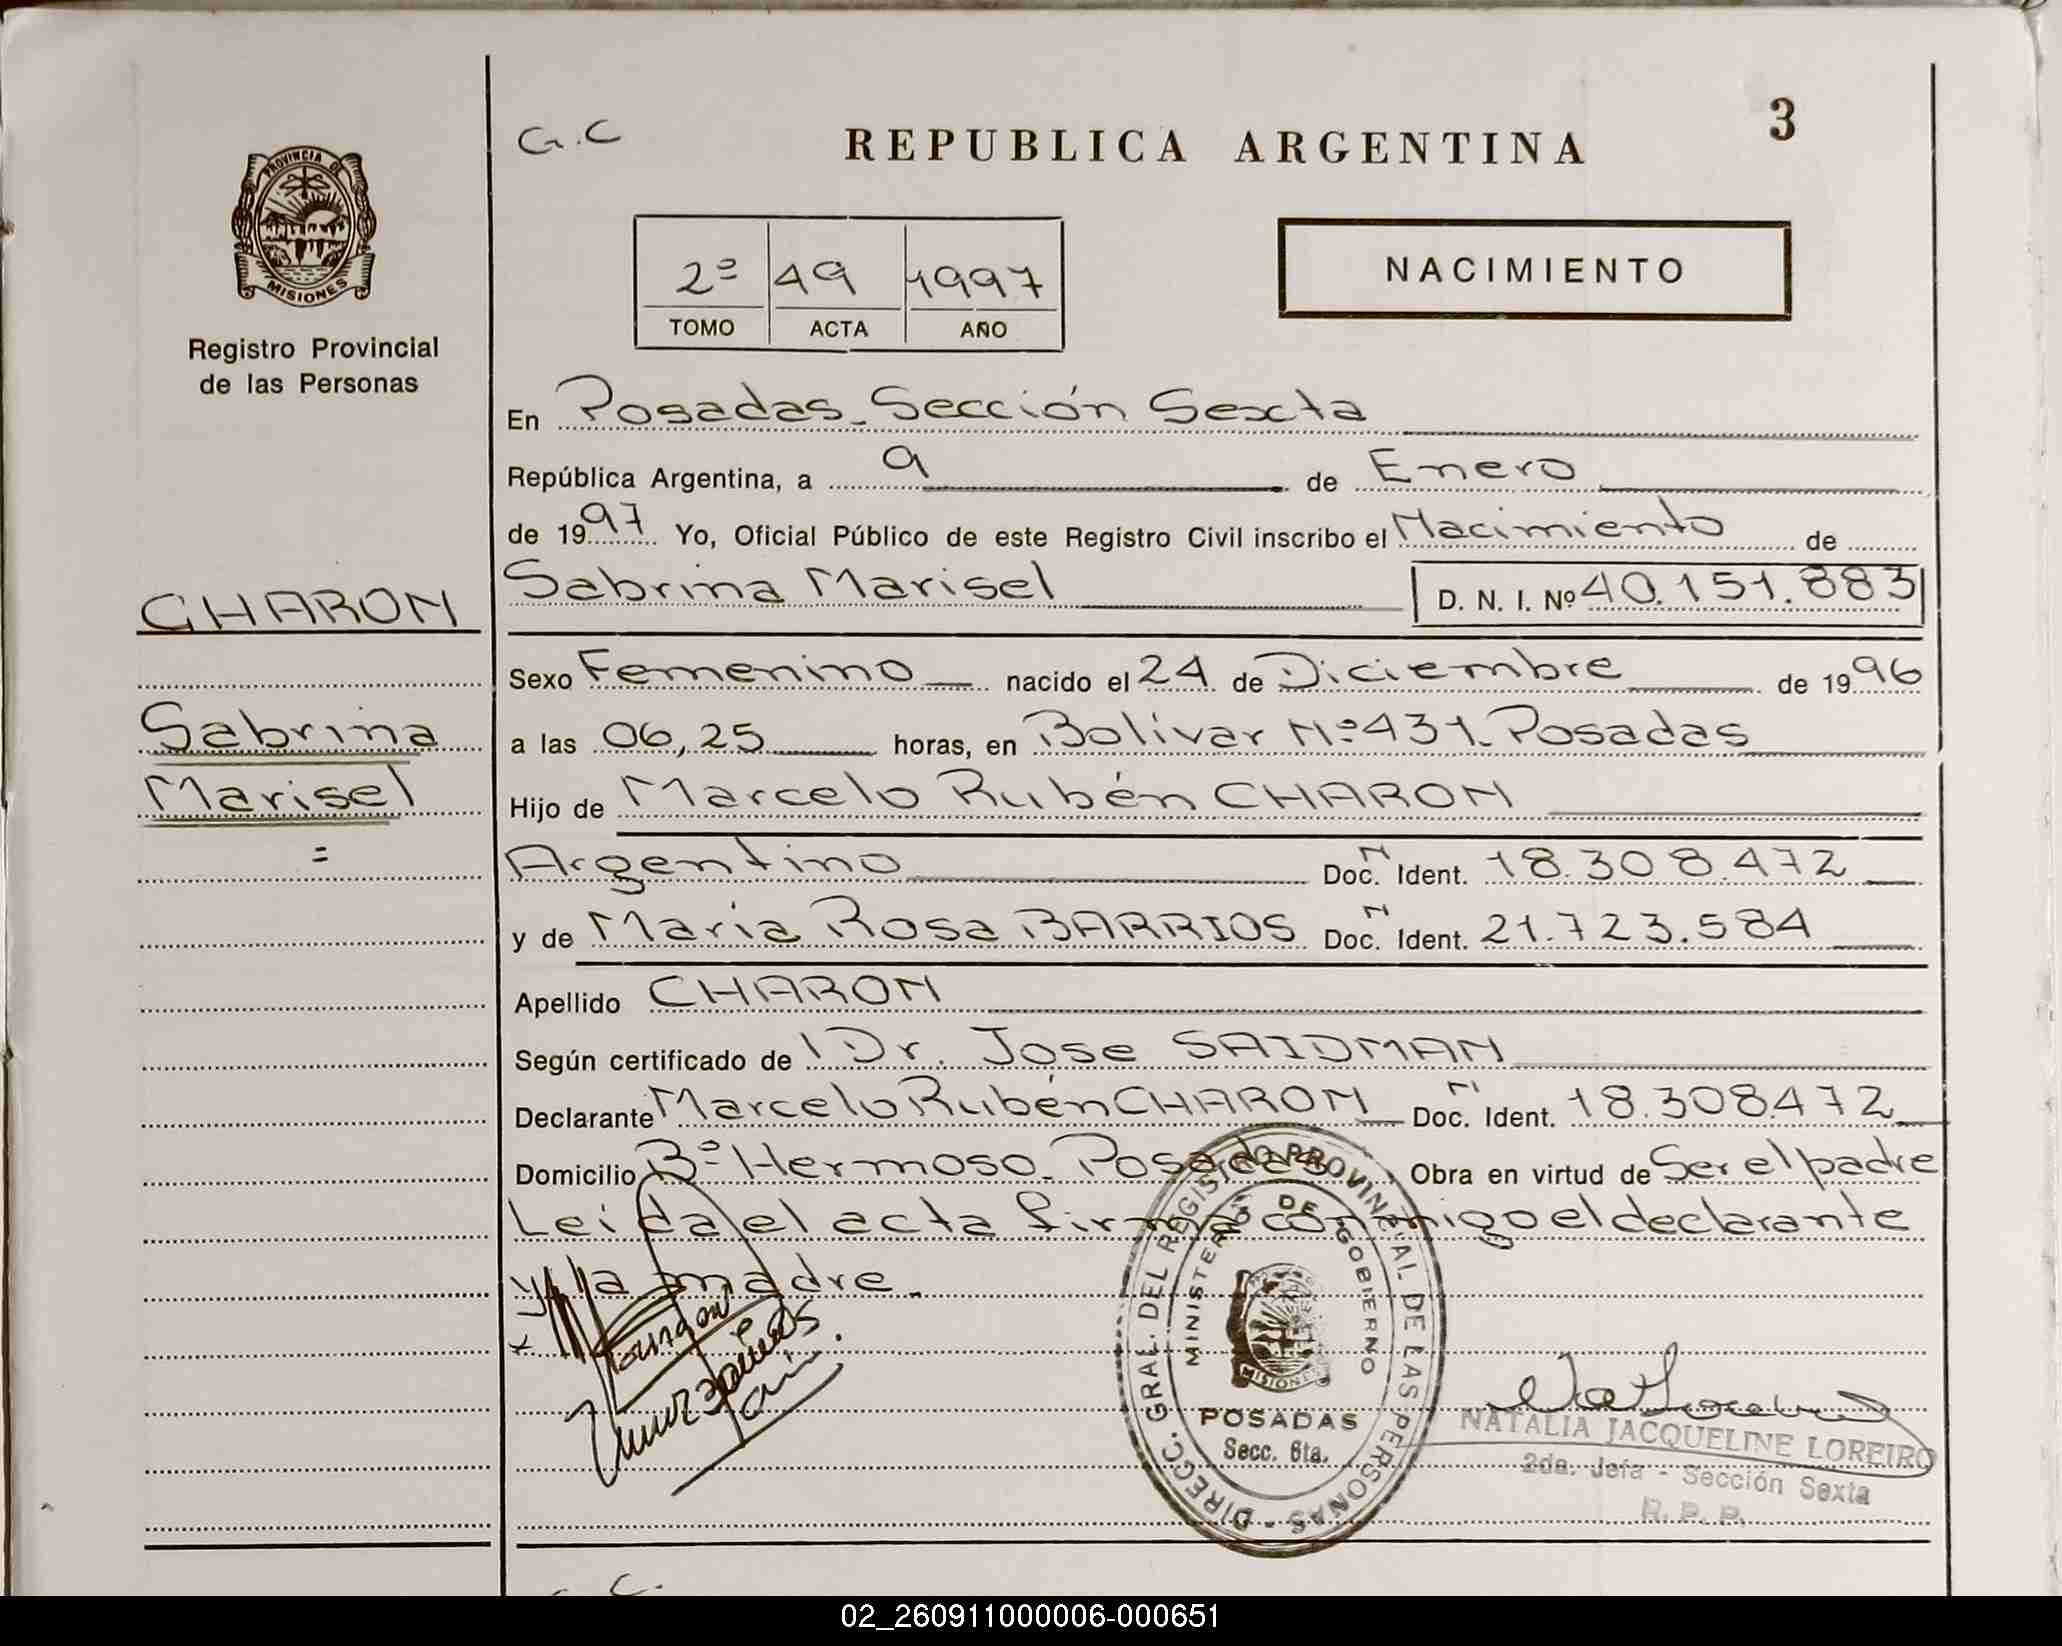 G.C
REPUBLICA ARGENTINA
3
PROVINCIA DE
MISIONES
Registro Provincial
de las Personas
2º 49 1997
TOMO ACTA AÑO
NACIMIENTO
En Posadas - Sección Sexta
República Argentina, a 9 de Enero
de 1997 Yo, Oficial Público de este Registro Civil inscribo el Nacimiento de
CHARON
Sabrina Marisel D. N. I. Nº 40.151.883
Sexo Femenino nacido el 24 de Diciembre de 1996
Sabrina
a las 06,25 horas, en Bolívar Nº 431 - Posadas
Marisel
Hijo de Marcelo Rubén CHARON
=
Argentino Doc. N Ident. 18.308.472
y de María Rosa BARRIOS Doc. N Ident. 21.723.584
Apellido CHARON
Según certificado de Dr. Jose SAIDMAN
Declarante Marcelo Rubén CHARON Doc. N Ident. 18.308.472
Domicilio Bº Hermoso - Posadas Obra en virtud de Ser el padre
Leida el acta firma conmigo el declarante
y la madre.
DIRECC. GRAL. DEL REGISTRO PROVINCIAL DE LAS PERSONAS
MINISTERIO DE GOBIERNO
MISIONES
POSADAS
Secc. 6ta.
NATALIA JACQUELINE LOREIRO
2da. Jefa - Sección Sexta
R. P. P.
02_260911000006-000651